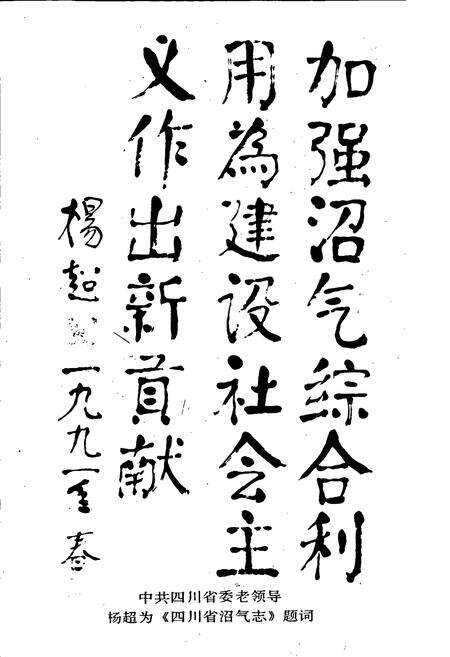 加强沼气综合利
用為建设社会主
义作出新貢献
楊超
一九九一年春
中共四川省委老领导
杨超为《四川省沼气志》题词